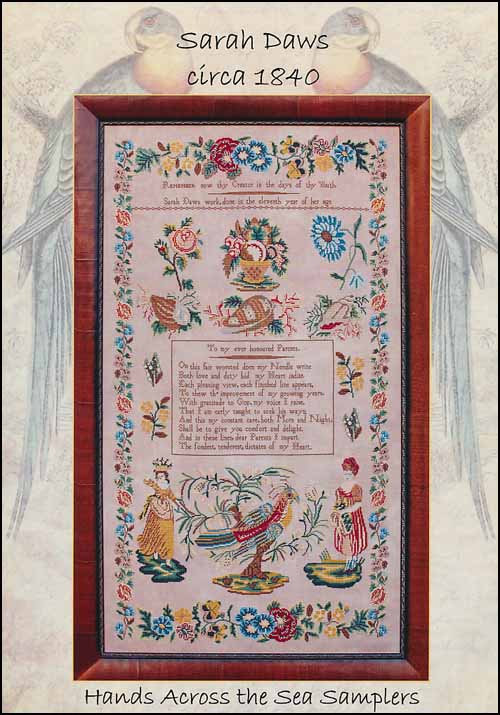 Sarah Daws
circa 1840
Remember now thy Creator is the days of thy Youth.
Sarah Daws work, done is the eleventh year of her age
To my ever honoured Parents.
On this fair worsted does my Needle write
Both love and duty bid my Heart indite
Each pleasing view, each finished line appears,
To shew th' improvement of my growing years,
With gratitude to God, my voice I raise,
That I am early taught to seek his ways;
And this my constant care, both Morn and Night,
Shall be to give you comfort and delight.
And in these lines, dear Parents I impart,
The fondest, tenderest, dictates of my Heart.
Hands Across the Sea Samplers